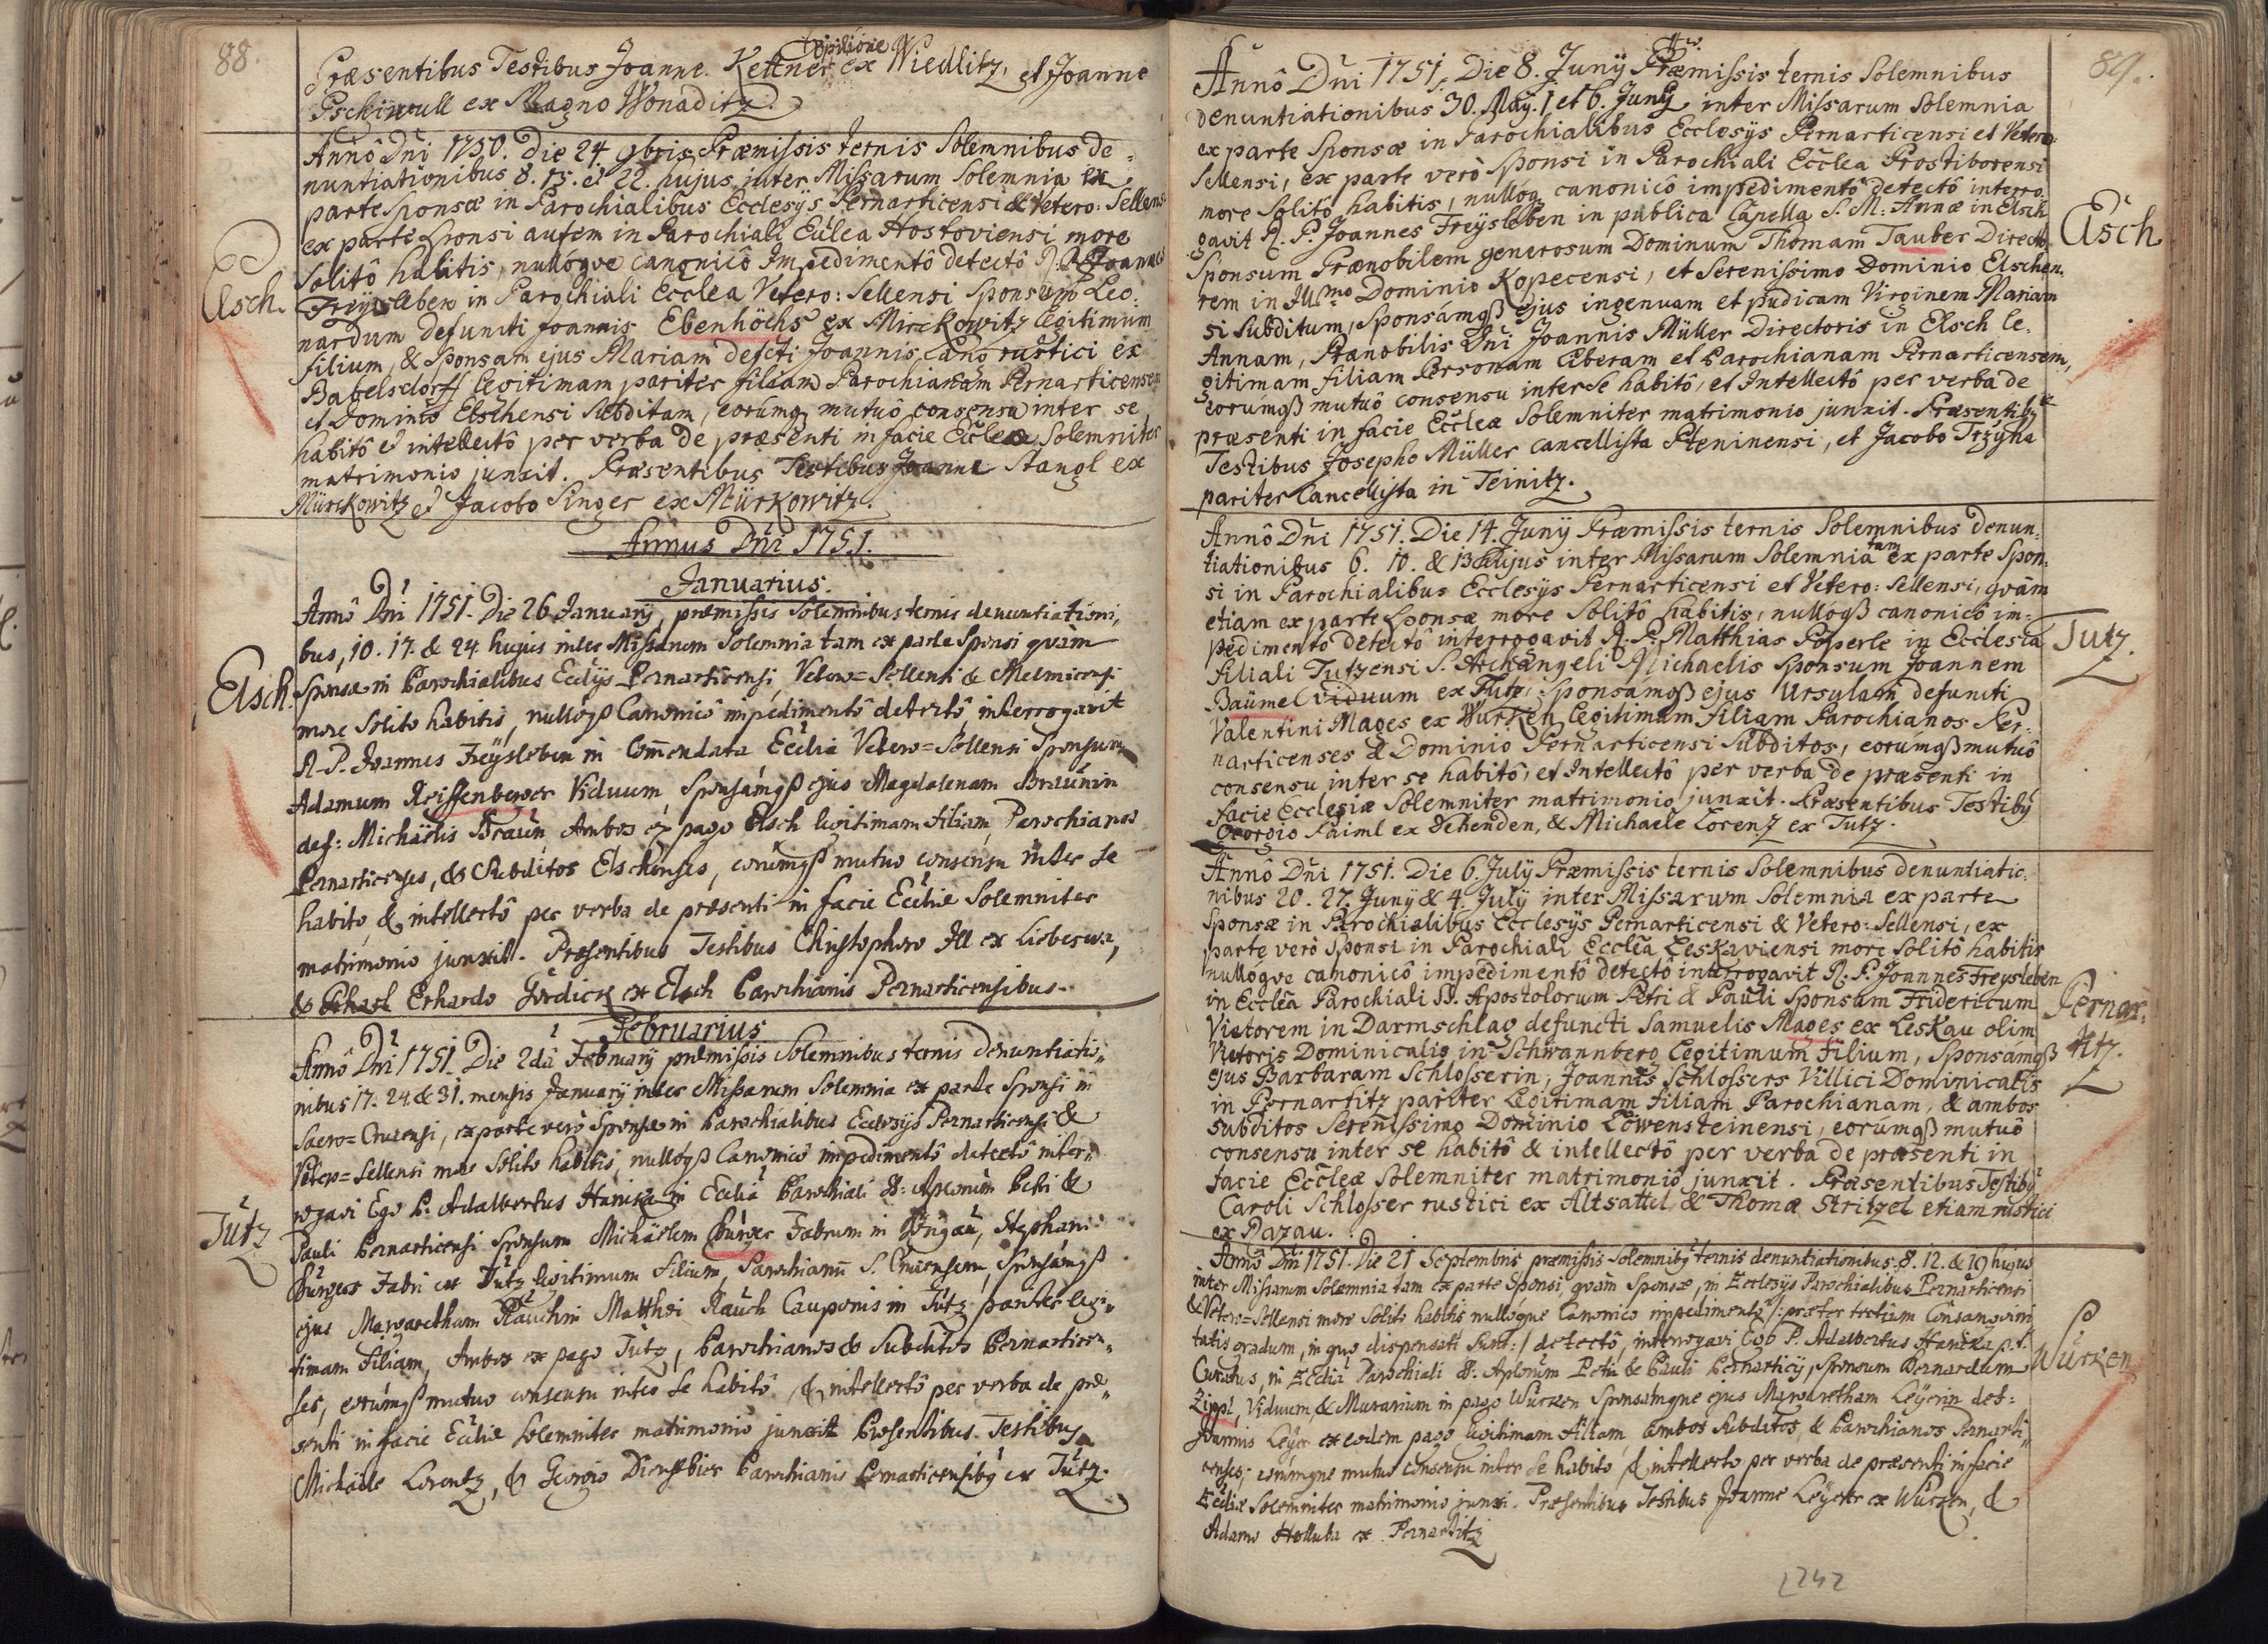 88.
Præsentibus Testibus Joanne Kettner opilione ex Wiedlitz, et Joanne
Pschiwull ex Magno Wonaditz.
Annô Dni 1750. Die 24. 9bris Præmissis ternis Solemnibus de=
nuntiationibus 8. 15. et 22. hujus inter Missarum Solemnia ex
parte Sponsæ in Parochialibus Ecclesijs Pernarticensi & Vetero: Sellensi
ex parte Sponsi autem in Parochiali Ecclea Hostoviensi more
Solitô habitis, nullóqve canonicô Impedimentô detectô R. P. Joannes
Freysleben in Parochiali Ecclea Vetero: Sellensi Sponsum Leo:
nardum defuncti Joannis Ebenhöchs ex Mirckowitz legitimum
filium, & Sponsam ejus Mariam defcti Joannis Lang rustici ex
Babelsdorff legitimam pariter filiam Parochianam Pernarticensem
et Dominio Elschensi Subditam, eorúmq mutuô consensu inter se
habitô et intellectô per verba de præsenti in facie Eccleæ Solemniter
matrimonio junxit. Præsentibus Testibus Joanne Stangl ex
Mürckowitz et Jacobo Singer ex Mürkowitz.
Elsch.
Annus Dni 1751.
Januarius.
Annô Dni 1751. Die 26 January, præmissis Solemnibus ternis denuntiationi,
bus, 10. 17. & 24 hujus inter Missarum Solemnia tam ex parte Sponsi qvam
Sponsæ in Parochialibus Ecclijs Pernarticensi, Vetero=Sellensi &
more Solito habitis, nullóqß Canonicô impedimentô detectô, interrogavit
R. P. Joannes Freysleben in Commendata Ecclia Vetero=Sellensi Sponsum
Adamum Reiffenberger Viduum, Sponsámqß ejus Magdalenam Braunin
def: Michäelis Braun Ambos ex pago Elsch legitimam Filiam, Parochianos
Pernarticenses, & Subditos Elschenses, eorúmqß mutuo consensu inter se
habito, & intellectô per verba de præsenti in facie Eccliæ Solemniter
matrimonio junxit. Præsentibus Testibus Christophoro Ill ex Lieberswa,
& Erhardo Gördick ex Elsch Parochianis Pernarticensibus.
Elsch.
Februarius
Annô Dni 1751. Die 2da February præmissis Solemnibus ternis Denuntiatio,,
nibus 17. 24. & 31. mensis January inter Missarum Solemnia ex parte Sponsi in
Sacro=Crucensi, ex parte verò Sponsæ in Parochialibus Ecclesijs Pernarticensi &
Vetero=Sellensi more Solito habitis, nullóqß Canonicô impedimentô detectô inter,,
rogavi Ego P. Adalbertus Haniska in Ecclia Parochiali SS: Aplorum Petri &
Pauli Pernarticensi Sponsum Michäelem Burger Fabrum in, Stephani
Burgers Fabri ex Tutz legitimum Filium, Parochianum S. Crucensem, Sponsámqß
ejus Margaretham Rauchin Matthæi Rauch Cauponis in Tutz pariter legi,,
timam Filiam, Ambos ex pago Tutz, Parochianos & Subditos Pernarticen,,
ses, eorúmqß mutuo consensu inter se habitô, & intellectô per verba de præ,,
senti in facie Eccliæ Solemniter matrimonio junxit. Præsentibus Testibus
Michäele Lorentz, & Georgio Diensbier Parochianis Pernarticensibq ex Tutz.
Tutz
89.
Annô Dni 1751. Die 8. Juny Præmissis ternis Solemnibus
denuntiationibus 30. May. 1 et 6. Juny inter Missarum Solemnia
ex parte Sponsæ in Parochialibus Ecclesijs Pernarticensi et Vetero=
Sellensi, ex parte verò Sponsi in Parochiali Ecclea Prostiborensi
more Solitô habitis, nullóq canonicô impedimentô detectô interro=
gavit R. P. Joannes Freysleben in publica Capella S. M: Annæ in Elsch
Sponsum Prænobilem generosum Dominum Thomam Tauber Directo
rem in Illmo Dominio Kopecensi, et Serenissimo Dominio Elschen:
si Subditum, Sponsámqß ejus ingenuam et pudicam Virginem Mariam
Annam, Prænobilis Dni Joannis Müller Directoris in Elsch le:
gitimam filiam Personam liberam et Parochianam Pernarticensem,
eorúmqß mutuô consensu inter se habitô, et Intellectô per verba de
præsenti in facie Eccleæ Solemniter matrimonio junxit. Præsentibq
Testibus Josepho Müller cancellista Pteninensi, et Jacobo Trzyha
pariter Cancellista in Teinitz.
Elsch
Annô Dni 1751. Die 14. Juny Præmissis ternis Solemnibus denun:
tiationibus 6. 10. & 13 hujus inter Missarum Solemnia tam ex parte Spon:
si in Parochialibus Ecclesijs Pernarticensi et Vetero: Sellensi, qvàm
etiam ex parte Sponsæ more Solitô habitis, nullóqß canonicô im:
pedimentô detectô interrogavit R. P. Matthias Poperle in Ecclesia
filiali Tutzensi S. Archangeli Michaelis Sponsum Joannem
Baümel viduum ex Tutz, Sponsámqß ejus Ursulam defuncti
Valentini Mages ex Wurken legitimam filiam Parochianos Per:
narticenses & Dominio Pernarticensi Subditos, eorúmqß mutuô
consensu inter se habitô, et Intellectô per verba de præsenti in
facie Ecclesiæ Solemniter matrimonio junxit. Præsentibus Testibq
Georgio Faiml ex Dehenden, & Michaele Lorenz ex Tutz.
Tutz.
Annô Dni 1751. Die 6. July Præmissis ternis Solemnibus denuntiatio:
nibus 20. 27. Juny & 4. July inter Missarum Solemnia ex parte
Sponsæ in Parochialibus Ecclesijs Pernarticensi & Vetero: Sellensi, ex
parte verò Sponsi in Parochiali Ecclea Leskaviensi more Solitô habitis
nullóqve canonicô impedimentô detectô interrogavit R. P. Joannes Freysleben
in Ecclea Parochiali SS. Apostolorum Petri & Pauli Sponsum Fridericum
Vietorem in Darmschlag defuncti Samuelis Mages ex Leskau olim
Vietoris Dominicalis in Schwannberg Legitimum Filium, Sponsámqß
ejus Barbaram Schlosserin, Joannis Schlossers Villici Dominicalis
in Pernartitz pariter Legitimam filiam Parochianam, & ambos
subditos Serenissimo Dominio Löwensteinensi, eorúmqß mutuô
consensu inter se habitô & intellectô per verba de præsenti in
facie Eccleæ Solemniter matrimonio junxit. Præsentibus Testibq
Caroli Schlosser rustici ex Altsattel & Thomæ Stritzel etiam rustici
ex Pazau.
Pernar:
titz.
Annô Dni 1751. Die 21 Septembris præmissis Solemnibq ternis denuntiationibus. 8. 12. & 19 hujus
inter Missarum Solemnia tam ex parte Sponsi, qvàm Sponsæ, in Ecclesijs Parochialibus Pernarticensi
& Vetero=Sellensi more Solito habitis nullóqne Canonico impedimentô /:præter tertium Consangvini
tatis gradum, in quo dispensati sunt:/ detectô, interrogavi Ego P. Adalbertus Haniska p.t.
Curatus, in Ecclia Parochiali SS: Aplorum Petri & Pauli Pernarticij, Sponsum Bernardum
Zippl, Viduum, & Murarium in pago Wurken Sponsamqne ejus Margaretham Leyerin def:
Joannis Leyer ex eodem pago legitimam Filiam, ambos Subditos, & Parochianos Pernarti,,
censes, eorúmqne mutuo consensu inter se habito, & intellecto per verba de præsenti in facie
Eccliæ Solemniter matrimonio junxi. Præsentibus Testibus Joanne Leyerer ex Wurken, &
Adamo Holluba ex Pernartitz
Wurken
2242